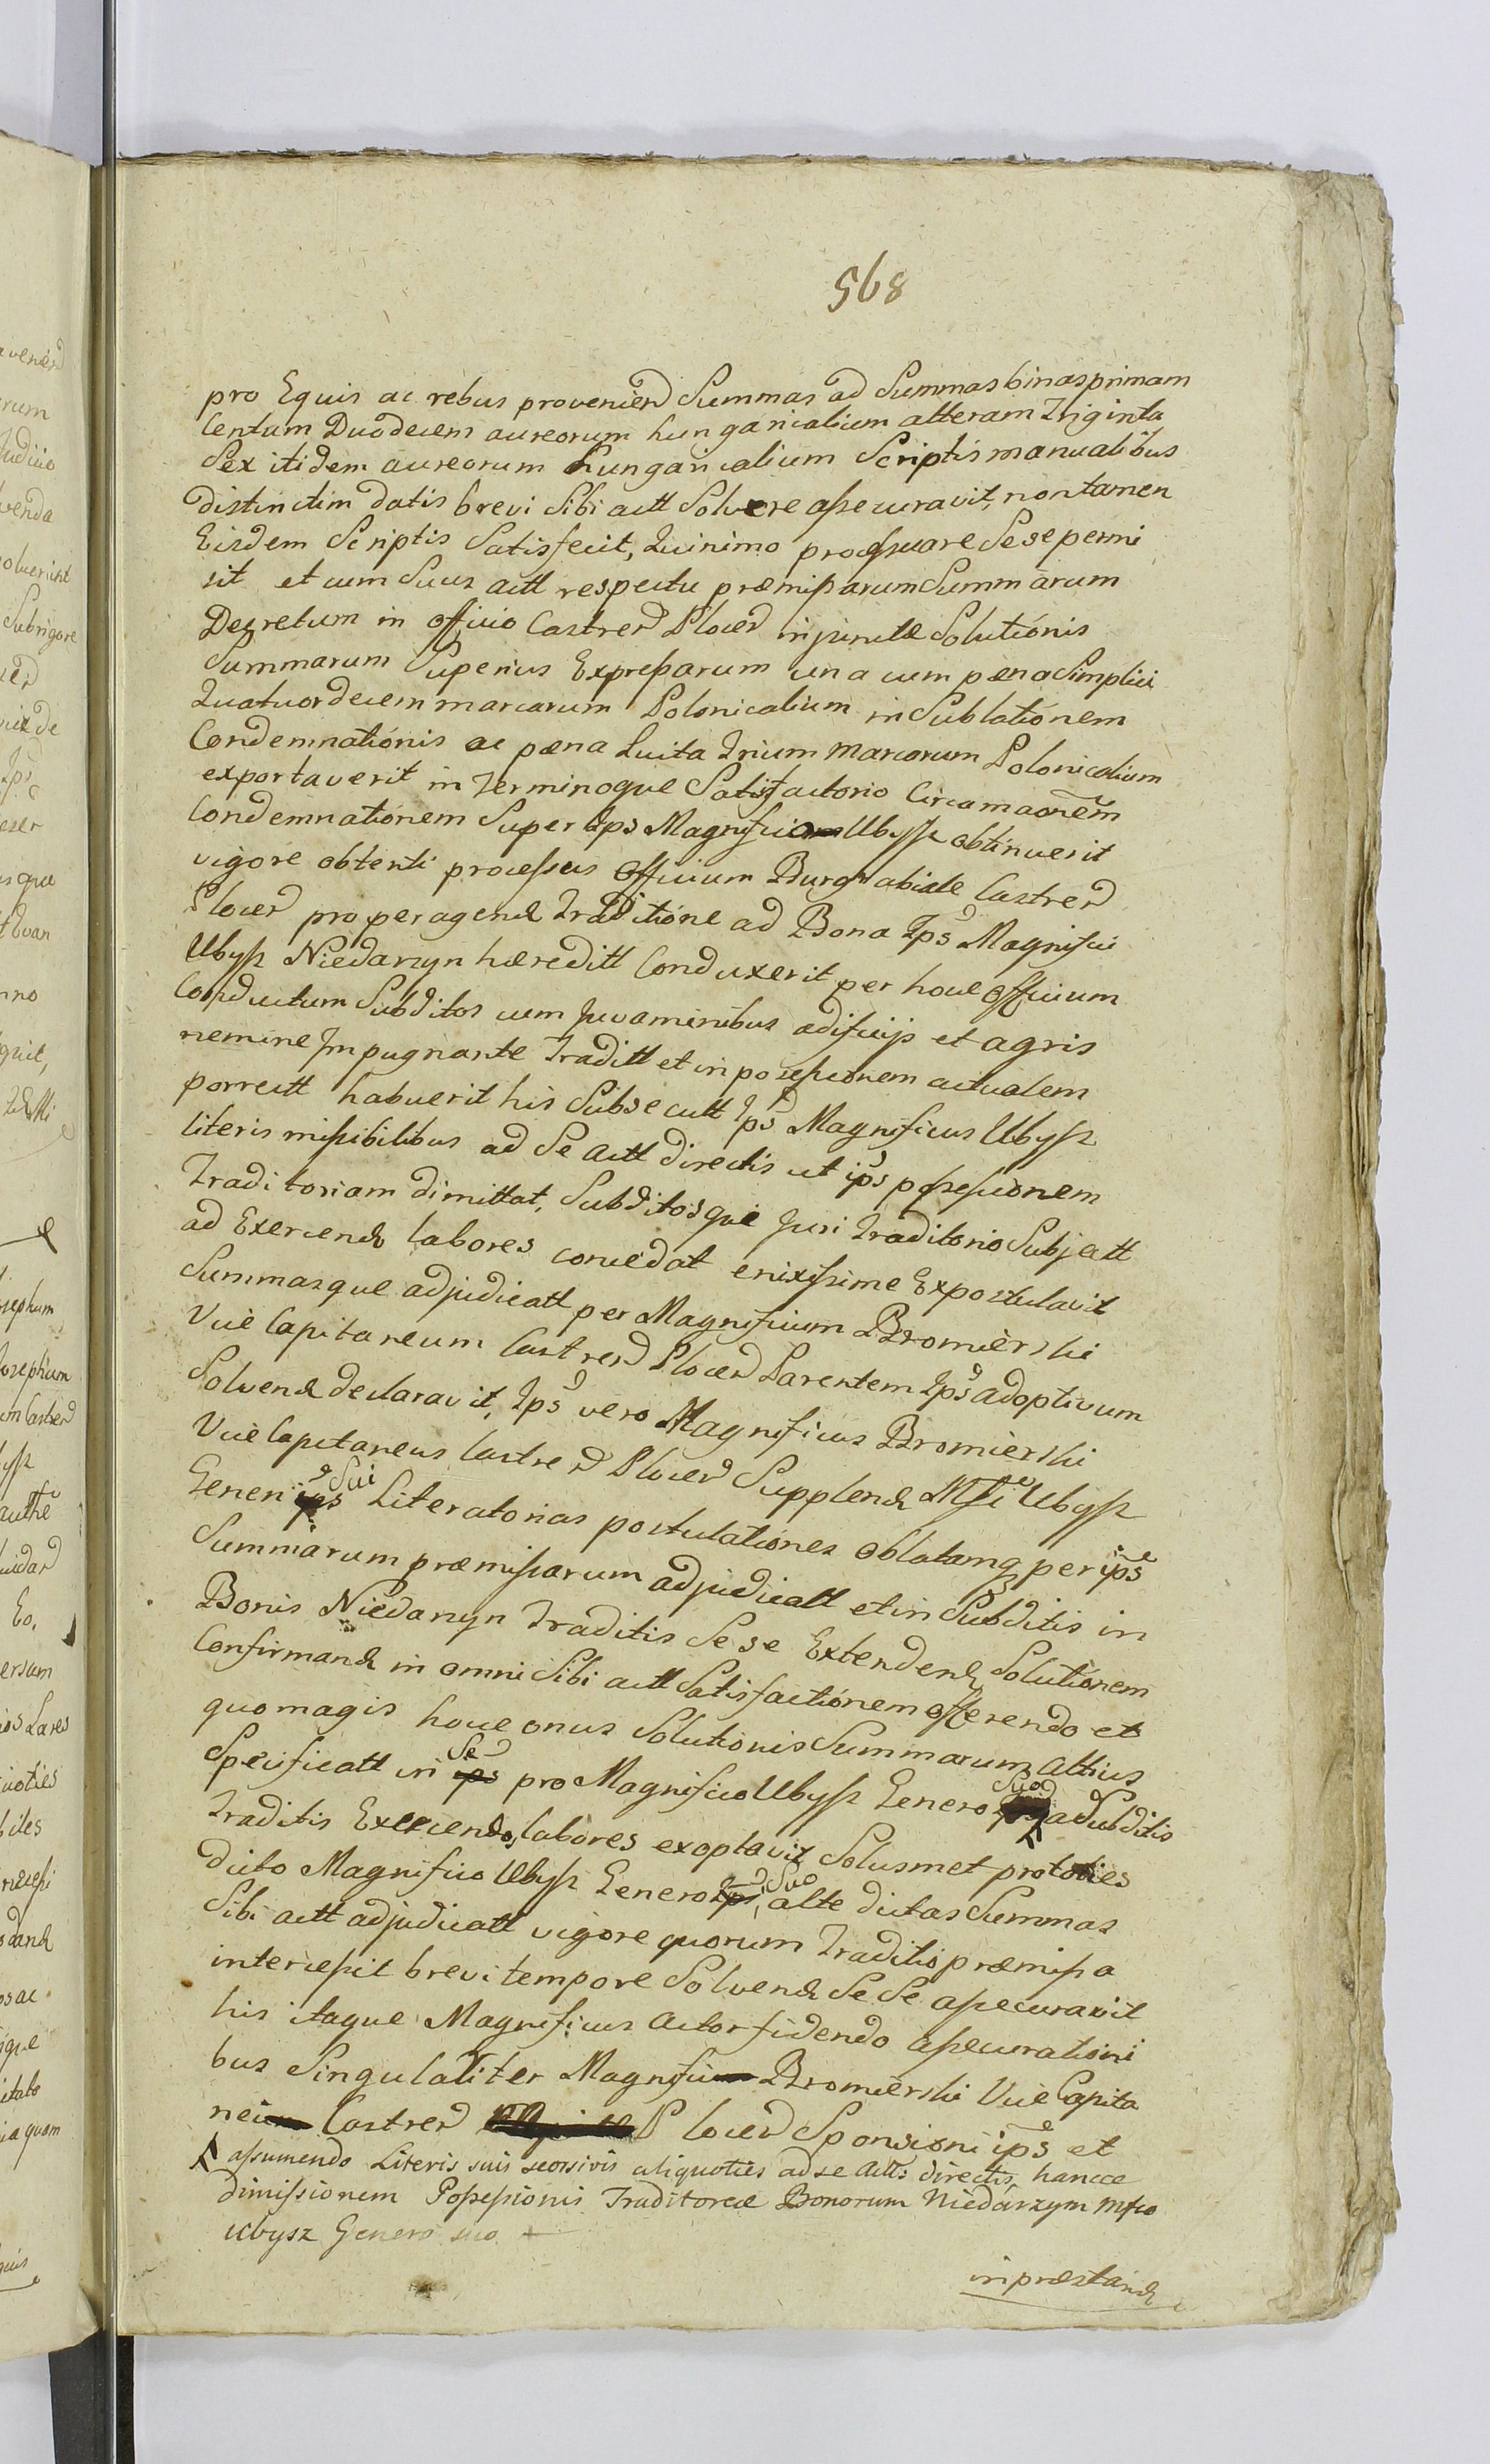 568
pro Equis ac rebus provenien Summas ad Summas binas primam
Centum Duodecem aureorum hungaricalium alteram Triginta
Sex itidem aureorum hungaricalium Scriptis manualibus
distinctim datis brevi Sibi actt Solvere assecuravit, non tamen
Eisdem Scriptis Satisfecit, Quinimo processuare Sese permi
sit et cum Suus actt respectu præmissarum Summarum
Decretum in officio Castren Plocen injunctæ Solutionis
Summarum Superius Expressarum una cum pæna Simplici
Quatuordecem marcarum Polonicalium in Sublationem
Condemnationis ac pæna Luita Trium Marcarum Polonicalium
exportaverit in Terminoque Satisfactorio Circa maonem
Condemnationem Super Ips Magnifico Ubysz obtinuerit
vigore obtenti processus officium Burgrabiale Castren
Plocen pro peragend Traditione ad Bona Ips Magnifici
Ubysz Niedarzyn hæreditt Conduxerit per hocce officium
Conductum Subditos cum Juvaminibus ædificijs et agris
nemine Impugnante Traditt et in possessionem actualem
porrectt habuerit his Subsecutt Ips Magnificus Ubysz
literis missibilibus ad Se actt directis ut ips possessionem
Traditoriam dimittat, Subditosque Juri Traditorio Subjectt
ad Exercend labores concedat enixissime Expostulavit
Summasque adjudicatt per Magnificum Bromierski
Vice Capitaneum Castren Plocen Parentem Ips adoptivum
Solvend declaravit, Ips vero Magnificus Bromierski
Vice Capitaneus Castren Plocen Supplend Mfci Ubysz
Generi ips Sui Literatorias postulationes oblatamq per ips
Summarum præmissarum adjudicatt et in Subditis in
Bonis Niedarzyn Traditis Sese Extendend Solutionem
Confirmand in omni Sibi actt Satisfactionem offerendo et
quo magis hocce onus Solutionis Summarum altius
Specificatt in ips Se pro Magnifico Ubysz Genero Suo ad Subditis
Traditis Exercendos labores exoptavit Solusmet pro toties
dicto Magnifico Ubysz Genero Ips Suo alte dictas Summas
Sibi actt adjudicatt vigore quorum Traditio præmissa
intercessit brevi tempore Solvend Se Se assecuravit
his itaque Magnificus actor fidendo assecurationi
bus Singulariter Magnifici Bromierski Vice Capita
nei Castren Plocen Sponsioni ips et
assumendo Literis suis seorsivis aliquoties ad se Actt: directis, hancce
dimissionem Possessionis Traditoreæ Bonorum Niedarzym Mfco
Ubysz Genero suo
in præstand